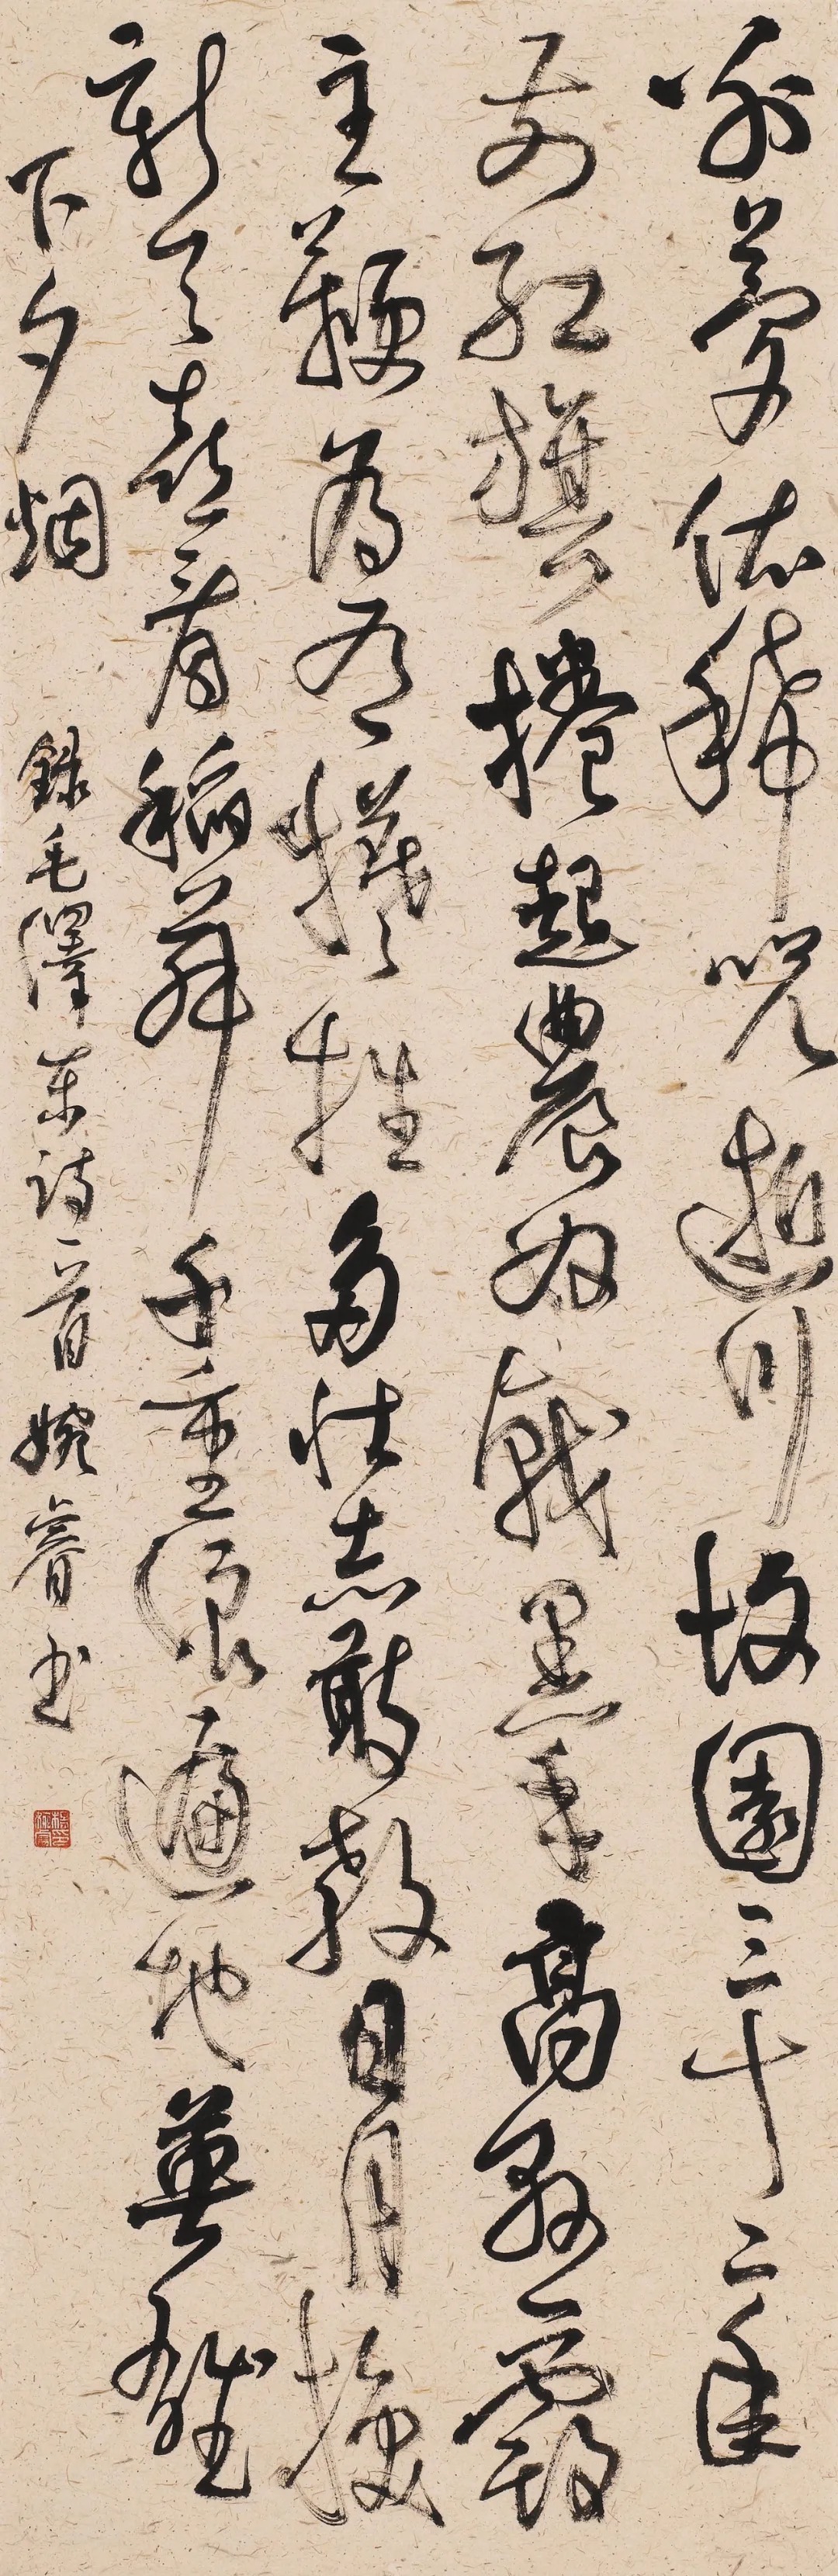 别夢依稀呪逝川故園三十二年
前紅旗捲起農奴戟黑手高悬霸
主鞭为有犧牲多壮志敢教日月换
新天喜看稻菽千重浪遍地英雄
下夕烟
錄毛澤东诗一首婉睿书